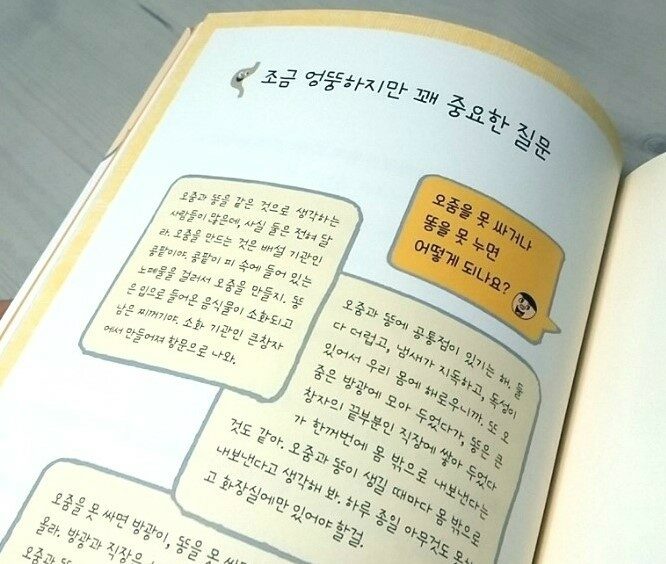 조금 엉뚱하지만 꽤 중요한 질문
오줌을 못 싸거나
똥을 못 누면
어떻게 되나요?
오줌과 똥을 같은 것으로 생각하는
사람들이 많은데, 사실 둘은 전혀 달
라. 오줌을 만드는 것은 배설 기관인
콩팥이야. 콩팥이 피 속에 들어 있는
노폐물을 걸러서 오줌을 만들지. 똥
은 입으로 들어온 음식물이 소화되고
남은 찌꺼기야. 소화 기관인 큰창자
에서 만들어져 항문으로 나와.
오줌과 똥에 공통점이 있기는 해. 둘
다 더럽고, 냄새가 지독하고, 독성이
있어서 우리 몸에 해로우니까. 또 오
줌은 방광에 모아 두었다가, 똥은 큰
창자의 끝부분인 직장에 쌓아 두었다
가 한꺼번에 몸 밖으로 내보낸다는
것도 같아. 오줌과 똥이 생길 때마다 몸 밖으로
내보낸다고 생각해 봐. 하루 종일 아무것도
고 화장실에만 있어야 할걸.
오줌을 못 싸면 방광이, 똥을 못
올라. 방광과 직장으
오줌과